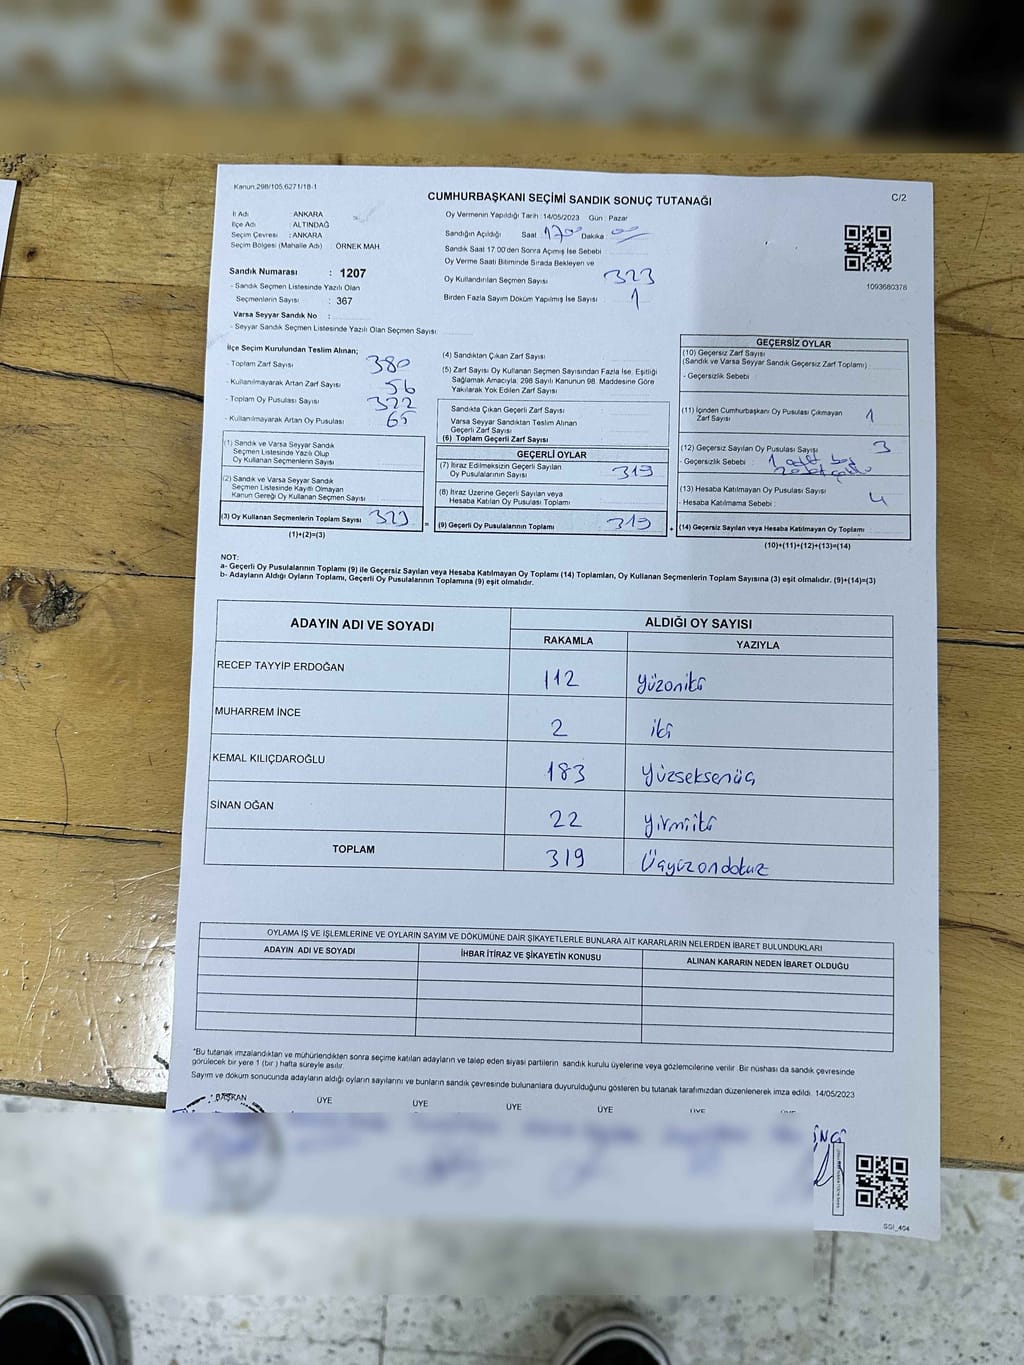 Kanun.298/105,6271/18-1
CUMHURBAŞKANI SEÇİMİ SANDIK SONUÇ TUTANAĞI
C/2
İl Adı : ANKARA
İlçe Adı : ALTINDAĞ
Seçim Çevresi : ANKARA
Seçim Bölgesi (Mahalle Adı) : ÖRNEK MAH
Oy Vermenin Yapıldığı Tarih : 14/05/2023 Gün : Pazar
Sandığın Açıldığı Saat 17:00 Dakika 00
Sandık Saat 17.00'den Sonra Açımış İse Sebebi
Oy Verme Saati Bitiminde Sırada Bekleyen ve
Oy Kullandırılan Seçmen Sayısı 323
Birden Fazla Sayım Döküm Yapılmış İse Sayısı 1
1093680378
Sandık Numarası : 1207
- Sandık Seçmen Listesinde Yazılı Olan
Seçmenlerin Sayısı : 367
Varsa Seyyar Sandık No :
- Seyyar Sandık Seçmen Listesinde Yazılı Olan Seçmen Sayısı
İlçe Seçim Kurulundan Teslim Alınan;
- Toplam Zarf Sayısı 380
- Kullanılmayarak Artan Zarf Sayısı 56
- Toplam Oy Pusulası Sayısı
- Kullanılmayarak Artan Oy Pusulası 65
(1) Sandık ve Varsa Seyyar Sandık
Seçmen Listesinde Yazılı Olup
Oy Kullanan Seçmenlerin Sayısı
(2) Sandık ve Varsa Seyyar Sandık
Seçmen Listesinde Kayıtlı Olmayan
Kanun Gereği Oy Kullanan Seçmen Sayısı
(3) Oy Kullanan Seçmenlerin Toplam Sayısı 323
(1)+(2)=(3)
(4) Sandıktan Çıkan Zarf Sayısı
(5) Zarf Sayısı Oy Kullanan Seçmen Sayısından Fazla İse, Eşitliği
Sağlamak Amacıyla, 298 Sayılı Kanunun 98. Maddesine Göre
Yakılarak Yok Edilen Zarf Sayısı
Sandıkta Çıkan Geçerli Zarf Sayısı
Varsa Seyyar Sandıktan Teslim Alınan
Geçerli Zarf Sayısı
(6) Toplam Geçerli Zarf Sayısı
GEÇERLİ OYLAR
(7) İtiraz Edilmeksizin Geçerli Sayılan
Oy Pusulalarının Sayısı 319
(8) İtiraz Üzerine Geçerli Sayılan veya
Hesaba Katılan Oy Pusulası Toplamı
= (9) Geçerli Oy Pusulalarının Toplamı 319
GEÇERSİZ OYLAR
(10) Geçersiz Zarf Sayısı
(Sandık ve Varsa Seyyar Sandık Geçersiz Zarf Toplamı)
- Geçersizlik Sebebi :
(11) İçinden Cumhurbaşkanı Oy Pusulası Çıkmayan
Zarf Sayısı 1
(12) Geçersiz Sayılan Oy Pusulası Sayısı 3
- Geçersizlik Sebebi :
(13) Hesaba Katılmayan Oy Pusulası Sayısı
- Hesaba Katılmama Sebebi : 4
+ (14) Geçersiz Sayılan veya Hesaba Katılmayan Oy Toplamı
(10)+(11)+(12)+(13)=(14)
NOT:
a- Geçerli Oy Pusulalarının Toplamı (9) ile Geçersiz Sayılan veya Hesaba Katılmayan Oy Toplamı (14) Toplamları, Oy Kullanan Seçmenlerin Toplam Sayısına (3) eşit olmalıdır. (9)+(14)=(3)
b- Adayların Aldığı Oyların Toplamı, Geçerli Oy Pusulalarının Toplamına (9) eşit olmalıdır.
ADAYIN ADI VE SOYADI
ALDIĞI OY SAYISI
RAKAMLA YAZIYLA
RECEP TAYYİP ERDOĞAN 112 Yüzoniki
MUHARREM İNCE 2 iki
KEMAL KILIÇDAROĞLU 183 Yüzseksenüç
SİNAN OĞAN 22 Yirmiiki
TOPLAM 319 Üçyüzondokuz
OYLAMA İŞ VE İŞLEMLERİNE VE OYLARIN SAYIM VE DÖKÜMÜNE DAİR ŞİKAYETLERLE BUNLARA AİT KARARLARIN NELERDEN İBARET BULUNDUKLARI
ADAYIN ADI VE SOYADI İHBAR İTİRAZ VE ŞİKAYETİN KONUSU ALINAN KARARIN NEDEN İBARET OLDUĞU
*Bu tutanak imzalandıktan ve mühürlendikten sonra seçime katılan adayların ve talep eden siyasi partilerin sandık kurulu üyelerine veya gözlemcilerine verilir. Bir nüshası da sandık çevresinde
görülecek bir yere 1 (bir) hafta süreyle asılır.
Sayım ve döküm sonucunda adayların aldığı oyların sayılarını ve bunların sandık çevresinde bulunanlara duyurulduğunu gösteren bu tutanak tarafımızdan düzenlenerek imza edildi. 14/05/2023
BAŞKAN ÜYE ÜYE ÜYE ÜYE ÜYE
SGI_404